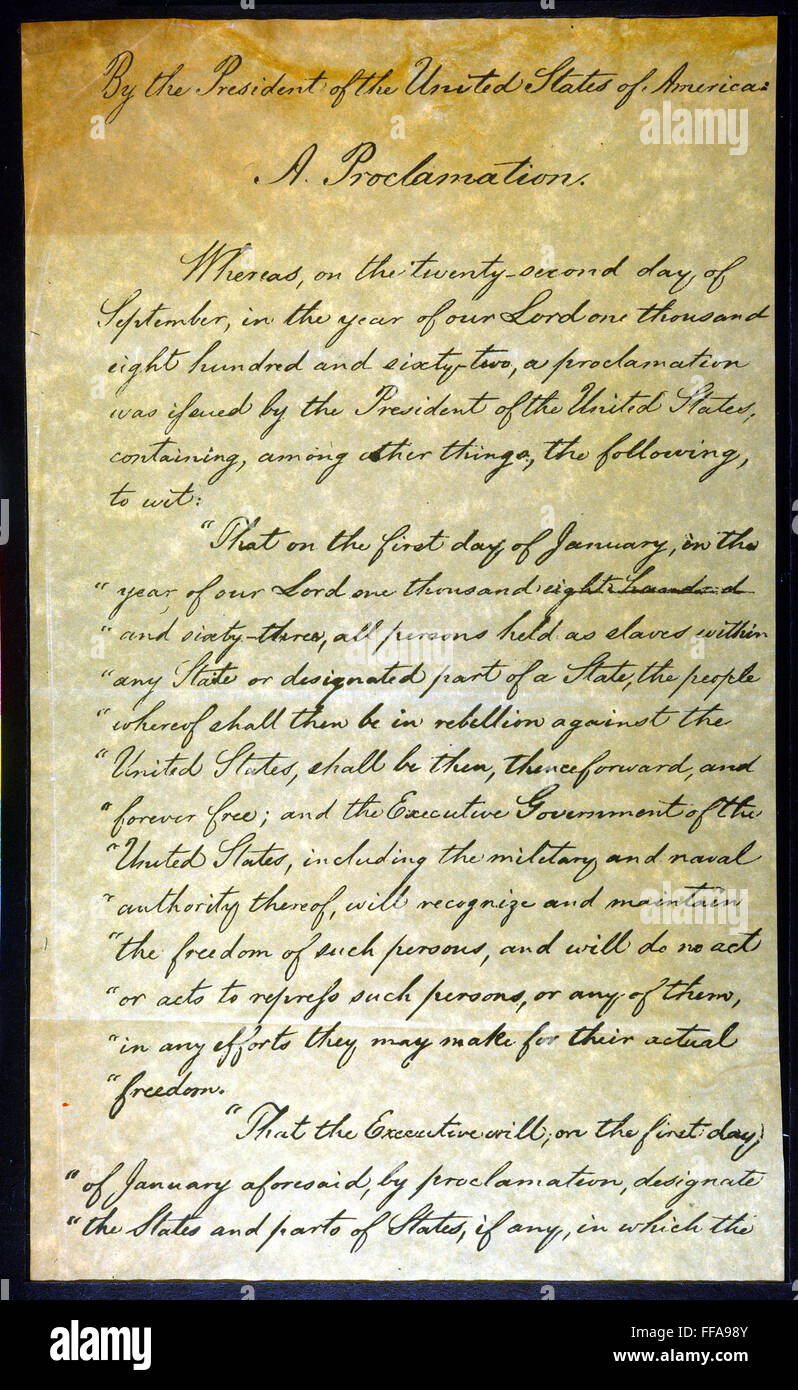 By the President of the United States of America:
A Proclamation.
Whereas, on the twenty-second day of
September, in the year of our Lord one thousand
eight hundred and sixty-two, a proclamation
was issued by the President of the United States,
containing, among other things, the following,
to wit:
"That on the first day of January, in the
"year of our Lord one thousand eight hundred
"and sixty-three, all persons held as slaves within
"any State or designated part of a State, the people
"whereof shall then be in rebellion against the
"United States, shall be then, thenceforward, and
"forever free; and the Executive Government of the
"United States, including the military and naval
"authority thereof, will recognize and maintain
"the freedom of such persons, and will do no act
"or acts to repress such persons, or any of them,
"in any efforts they may make for their actual
"freedom.
"That the Executive will, on the first day
"of January aforesaid, by proclamation, designate
"the States and parts of States, if any, in which the
alamy stock photo
alamy stock photo
alamy stock photo
a alamy stock photo
FFA98Y
www.alamy.com